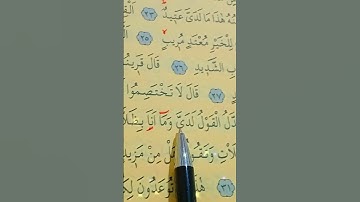 هٰذَا مَا لَدَيَّ عَتِيدٌ ﴿٢٣﴾
لِلْخَيْرِ مُعْتَدٍ مُرِيبٍ ﴿٢٥﴾
الشَّدِيدِ ﴿٢٦﴾ قَالَ قَرِينُ
﴿٢٧﴾ قَالَ لَا تَخْتَصِمُوا
دَّلُ الْقَوْلُ لَدَيَّ وَمَٓا اَنَا۬ بِظَلَّا
لَأْتِ وَتَقُو هَلْ مِنْ مَزٖي
﴿٣١﴾ هٰذَا تُوعَدُونَ لِكُ